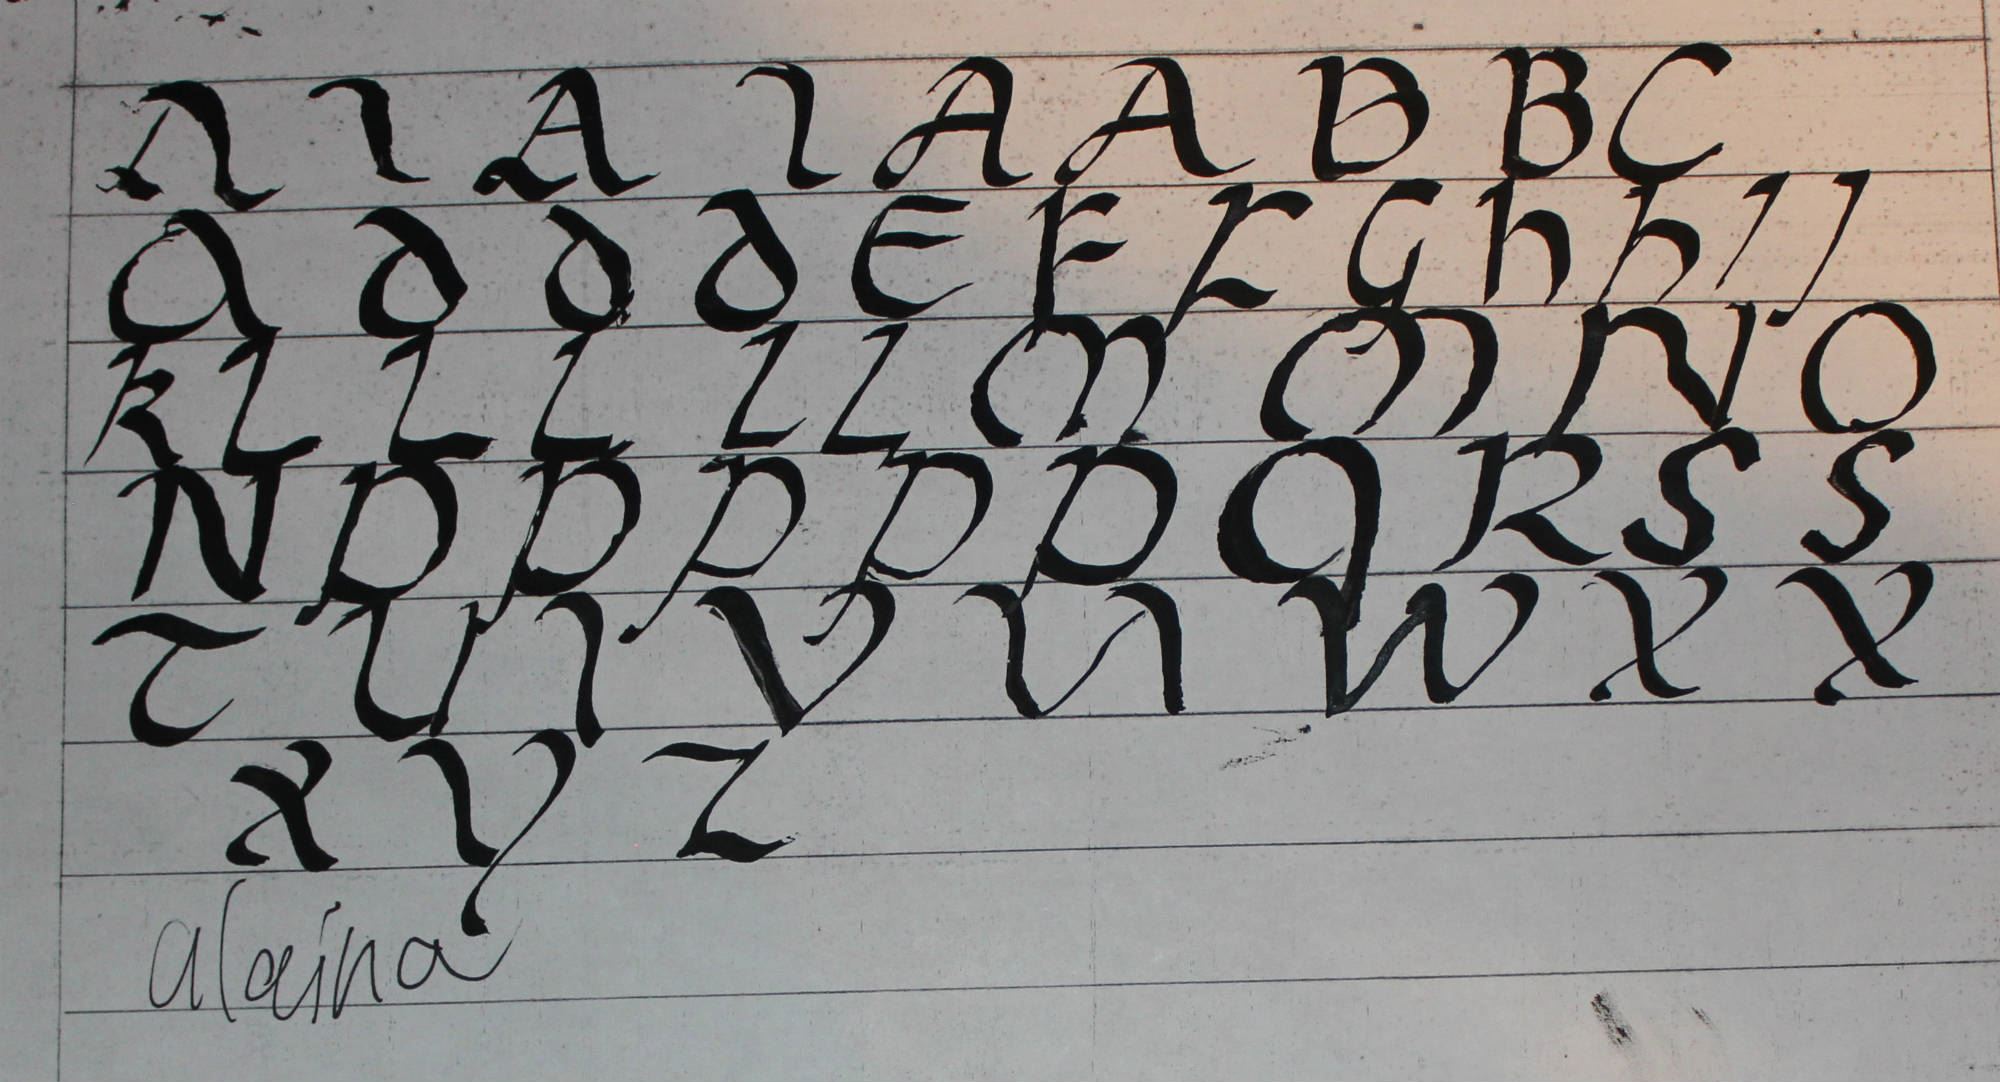 A A A A B B C
a d d d E F F G h h I J
K L L L L L M M N O
N P P P P P Q R S S
T U V U W X X
X Y Z
alaina